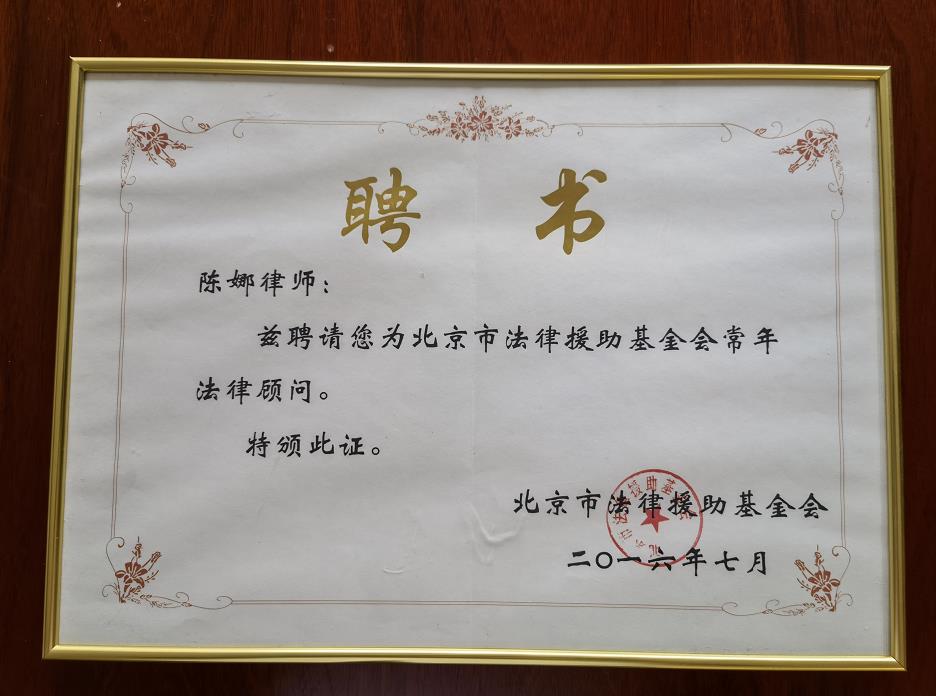 聘书
陈娜律师：
兹聘请您为北京市法律援助基金会常年
法律顾问。
特颁此证。
北京市法律援助基金会
二〇一六年七月
北京市法律援助基金会